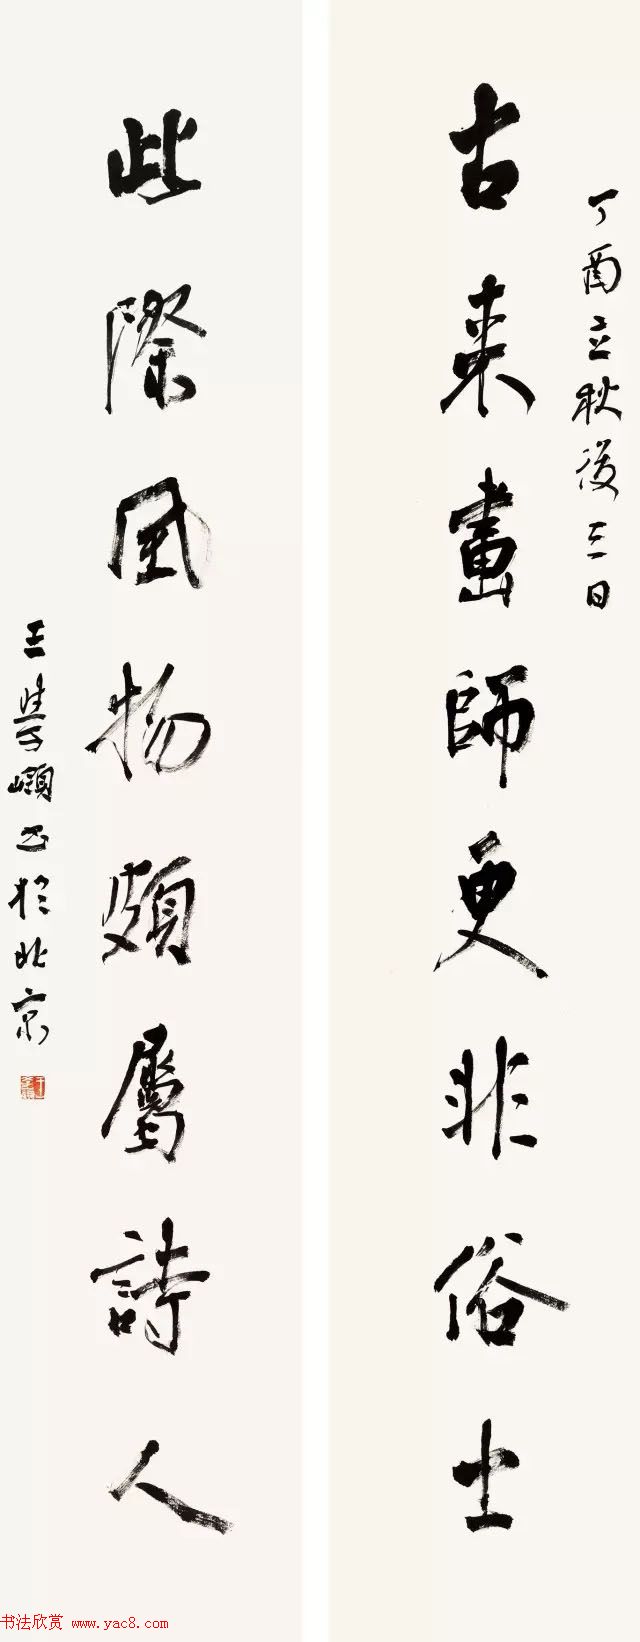 丁酉立秋後三日
古来畫師更非俗士
此際風物頗屬詩人
王學嶺书於北京
书法欣赏 www.yac8.com